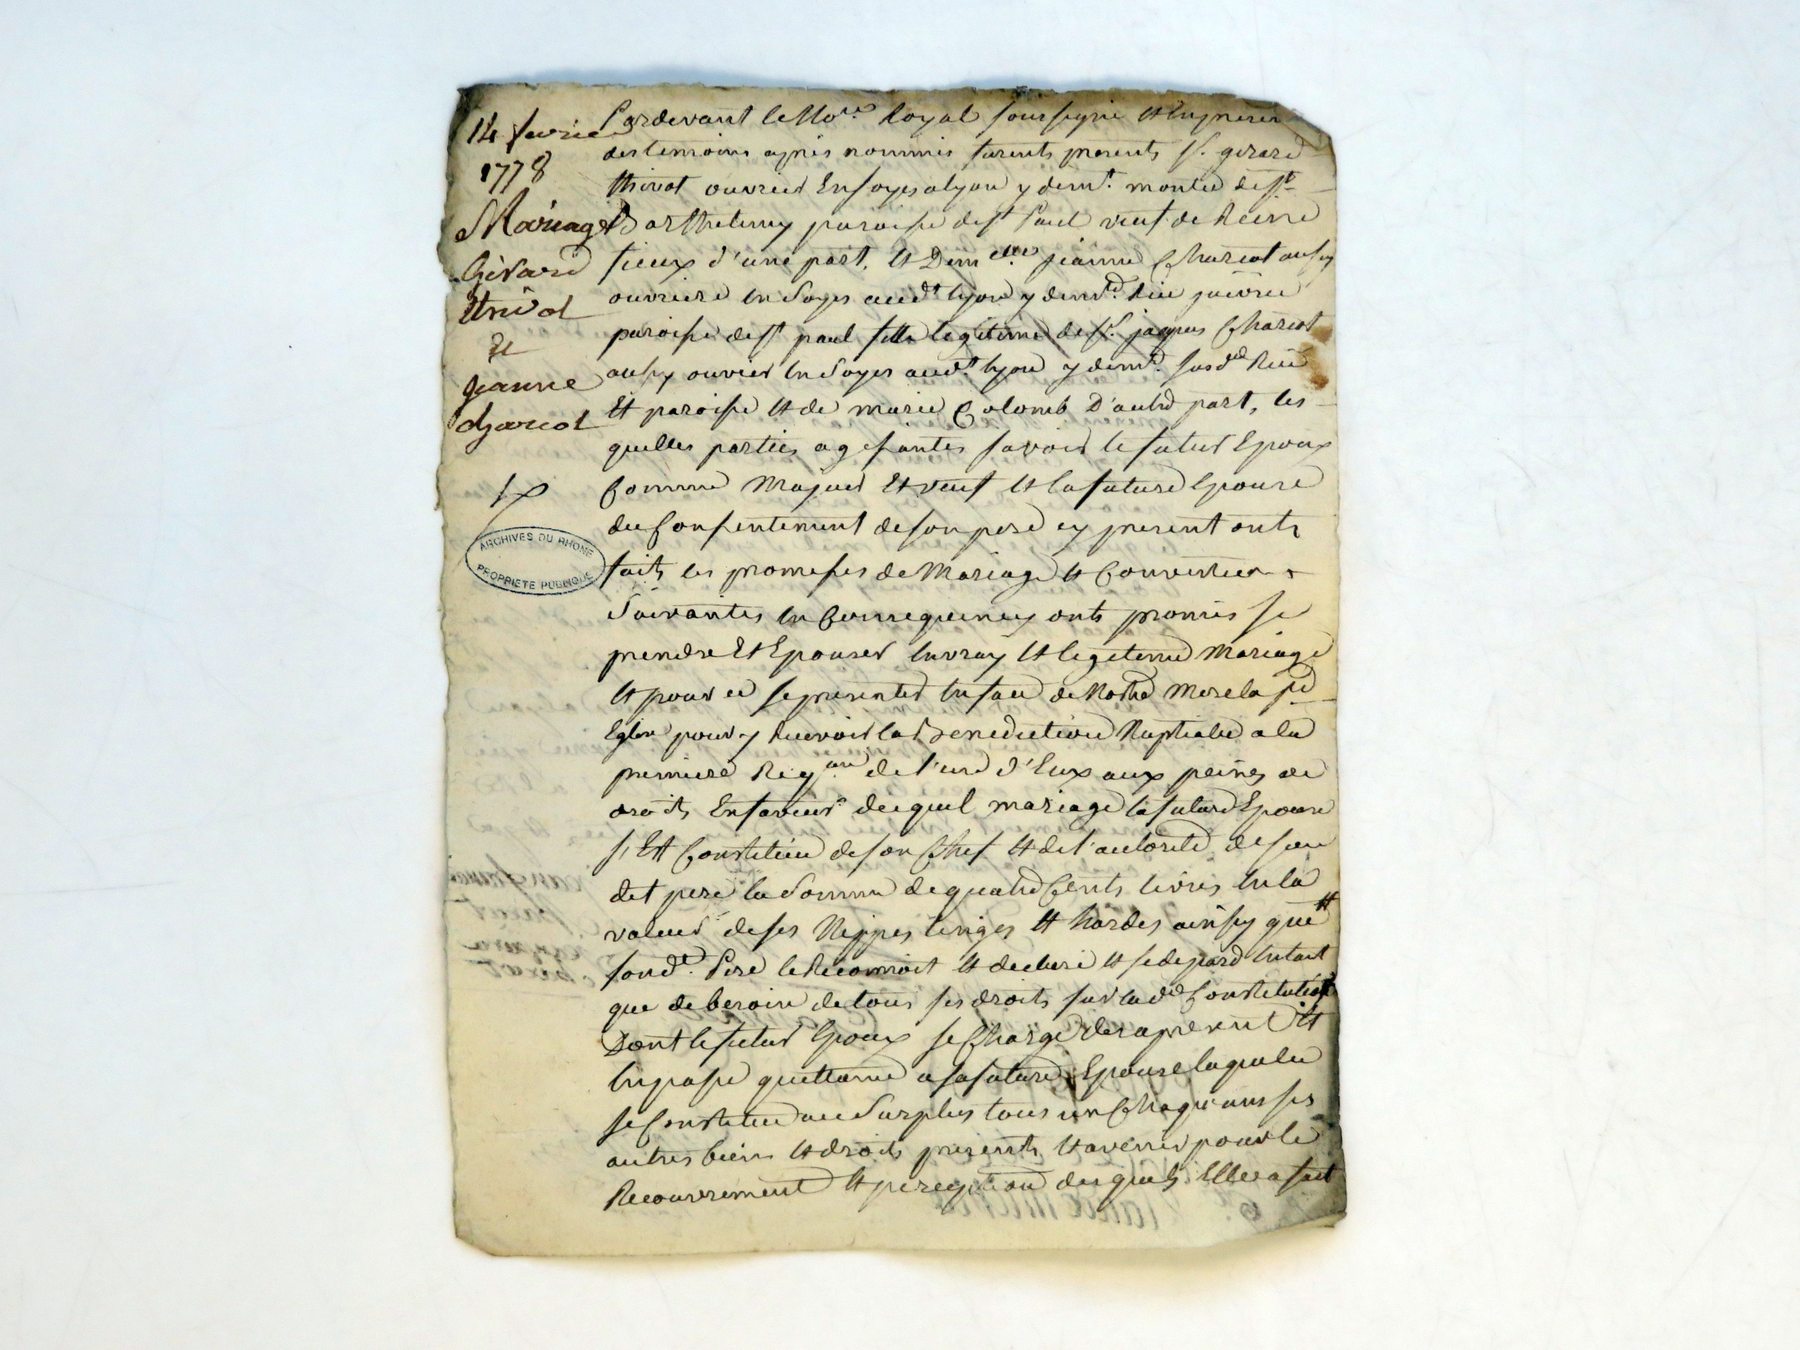 14 fevrier
1778
Mariage
Gerard
thivot
Et
jeanne
chariot
ARCHIVES DU RHONE
PROPRIETE PUBLIQUE
Pardevant le No.re Royal soussigné Et En presence
des temoins apres nommés furents presents Sr. gerard
thivot ouvrier En soyes a lyon y demt. montée de St
Barthelemy paroisse de St Paul veuf de Reine
fieux d'une part, Et Demelle jeanne Chariot aussy
ouvriere En Soyes aud.t lyon y demte. Rüe juivrie
paroisse de St paul fille legitime de Sr. jaques Chariot
aussy ouvrier En Soyes aud.t lyon y demt. susde Rüe
Et paroisse Et de marie Colomb D'autre part, les
quelles parties agissantes savoir le futur Epoux
Comme Majeur Et veuf Et la future Epouse
du Consentement de son pere cy present onts
faits les promesses de Mariage Et Conventions
Suivantes En Consequence onts promis se
prendre Et Epouser En vray Et legetime Mariage
Et pour ce se presenter En face de Notre Mere la Ste
Eglise pour y Recevoir la Benediction Nuptialle a la
premiere Reqon de l'une d'Eux aux peines de
droits En faveur duquel mariage la future Epouse
s'Est Constituée de son Chef Et de l'autorité de son
dit pere la Somme de quatre Cents livres En la
valeur de ses Nippes linges Et hardes ainsy que
sond.t Pere le Reconnoit Et declare Et se depard En tant
que de besoin de tous ses droits sur lade Constitution
Dont le futur Epoux se Charge des a present Et
En passe quittance a sa future Epouse laquelle
se Constitue au Surplus tous un Chaqu'uns ses
autres biens Et droits presents Et avenir pour le
Recouvrement Et perception desquels Elle a fait